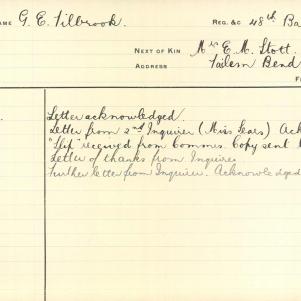 AME G. E. Tilbrook. REG. &C 48th Ba
NEXT OF KIN Mrs E. M. Stott.
ADDRESS Tailem Bend
Letter acknowledged.
Letter from 2nd Inquirer (Miss Sears) Ack
received from Commrs. Copy sent
Letter of thanks from Inquirer
Further letter from Inquirer. Acknowledged